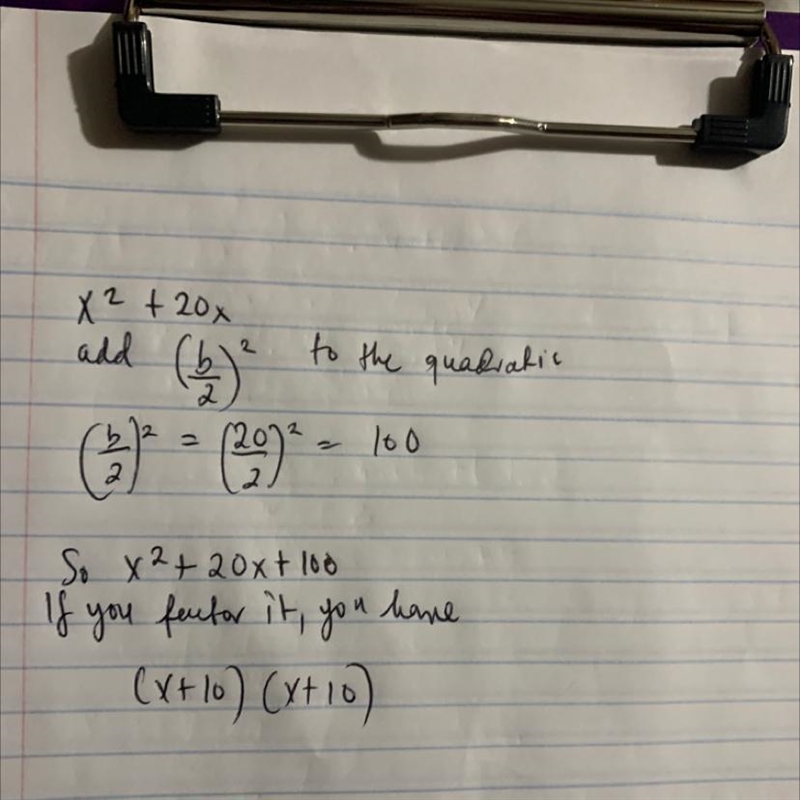 x² + 20x
add (b/2)² to the quadratic
(b/2)² = (20/2)² = 100
So x² + 20x + 100
If you factor it, you have
(x+10) (x+10)